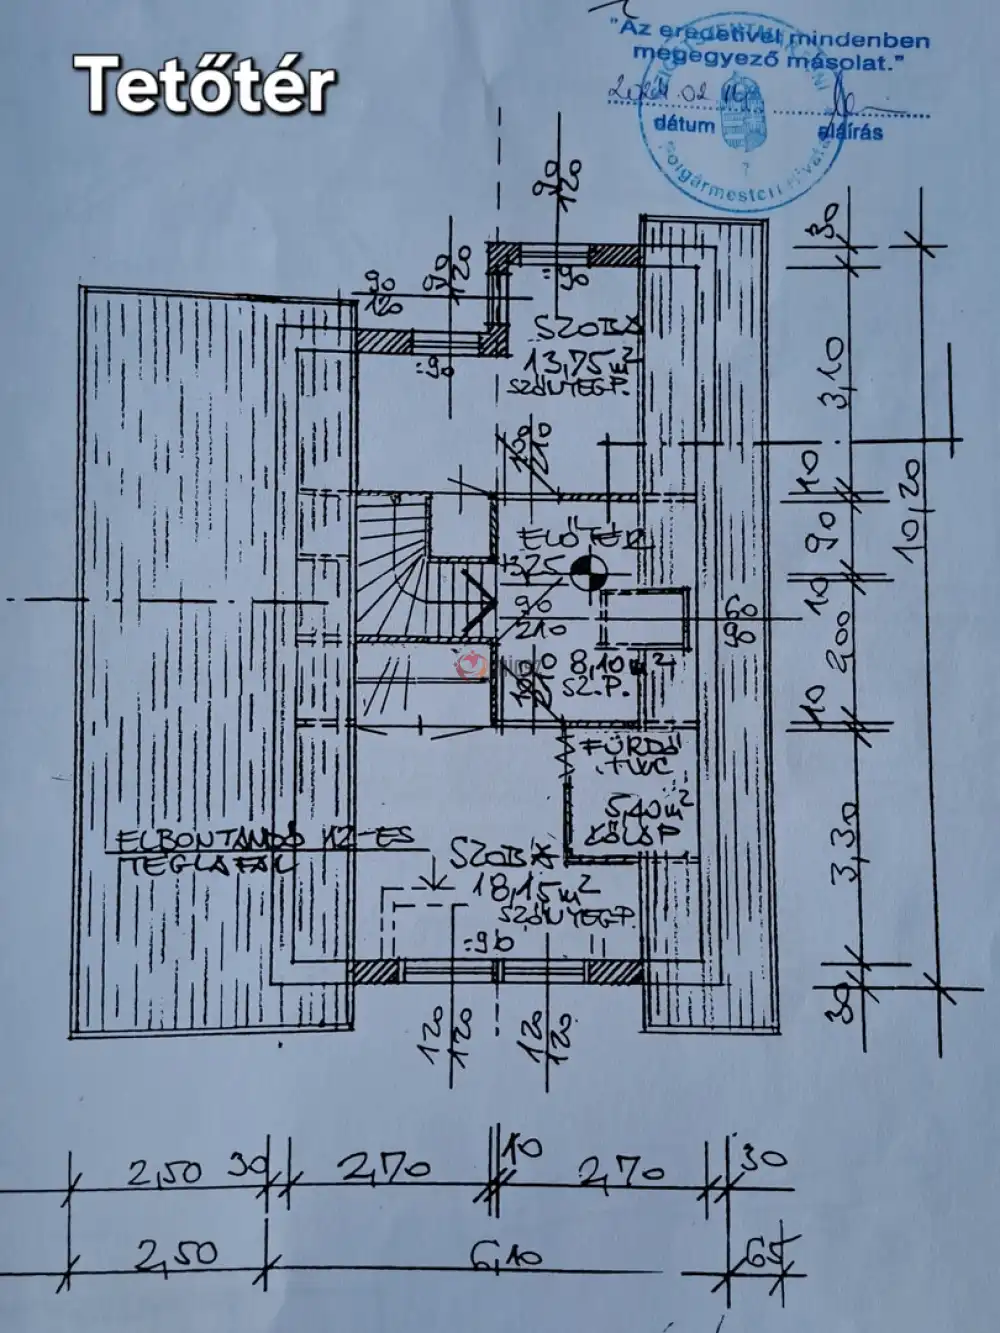 Tetőtér
"Az eredetivel mindenben
megegyező másolat."
dátum
aláírás
Polgármesteri Hivatal
90
120
90
120
90
120
:90
:90
SZOBA
13,75 m²
SZŐNYEGP.
100
210
ELŐTÉR
90
210
60
90
8,10 m²
SZ.P.
100
210
FÜRDŐ
+WC
5,40 m²
KŐLAP
ELBONTANDÓ 12-ES
TÉGLAFAL
SZOBA
18,15 m²
SZŐNYEGP.
:90
120
120
120
120
30
3,10
10
90
10
2,00
10
3,30
30
10,20
2,50
30
2,70
10
2,70
30
2,50
6,10
65